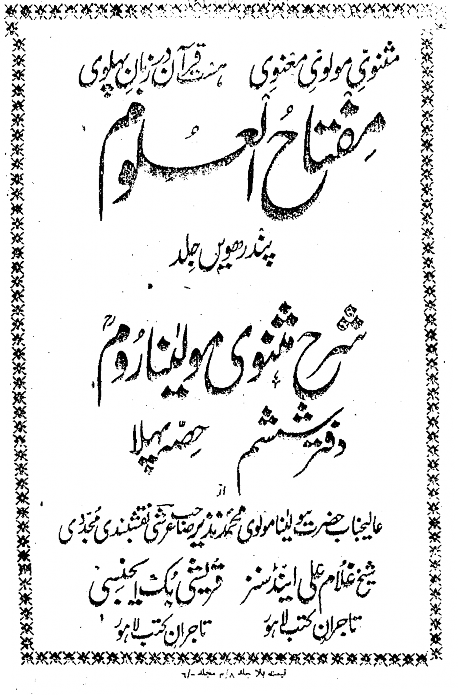 مثنویِ مولویِ معنوی ہست قرآن در زبانِ پہلوی
مِفتاحُ العُلوم
پندرھویں جِلد
شرح مثنوی مولیٰنا رُومؒ
دفتر ششم حِصّہ پہلا
از
عالیجناب حضرت مولیٰنا مولوی محمد نذیر صاحب عرشی نقشبندی مجدّدی
شیخ غلام علی اینڈ سنز قریشی بُک ایجنسی
تاجران کتب لاہور تاجران کتب لاہور
قیمت بلا جلد ۸/م مجلد -/٦